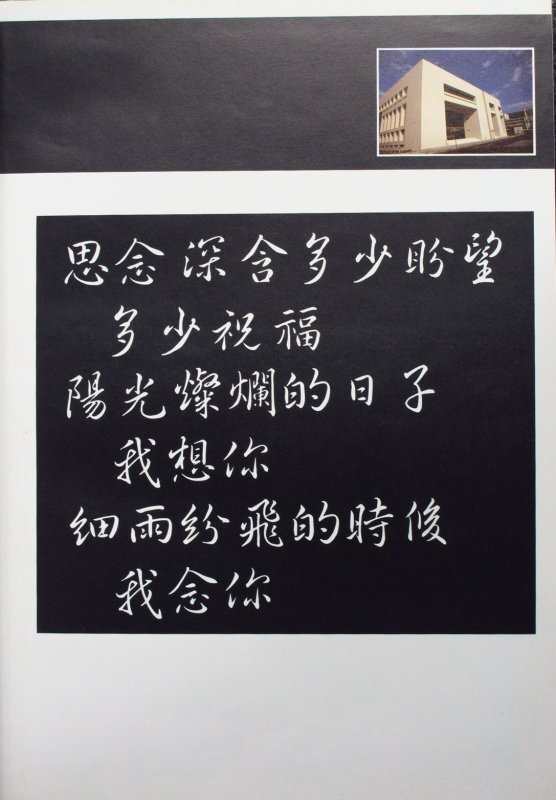 思念深含多少盼望
多少祝福
陽光燦爛的日子
我想你
細雨紛飛的時候
我念你